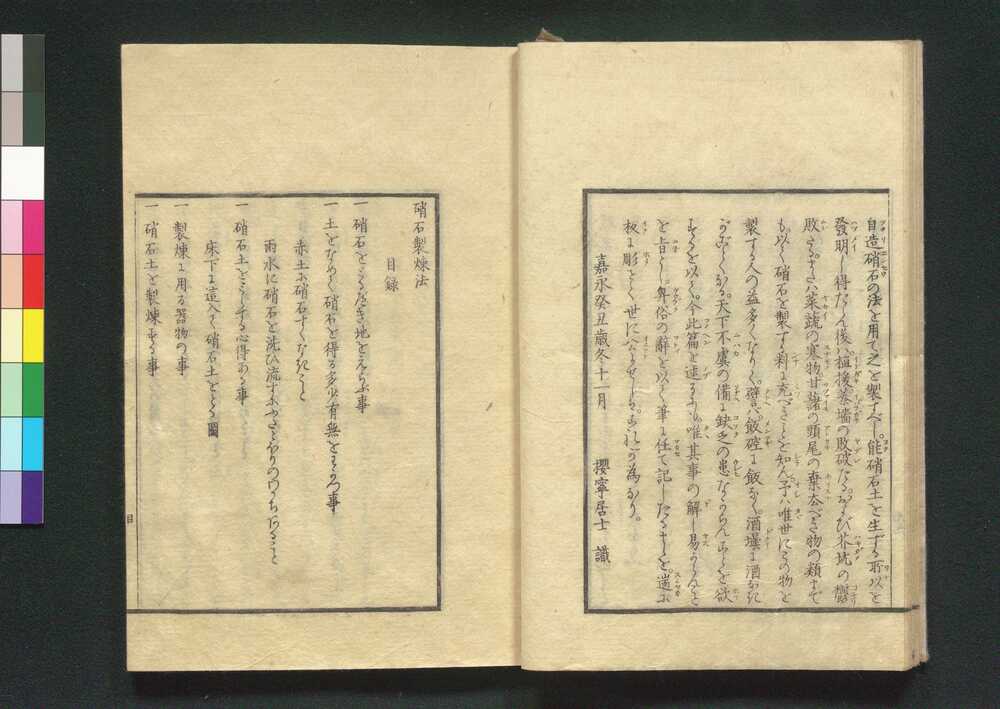 自造硝石の法を用て之を製すべし。能硝石土を生ずる所以を
發明し得たらん後ハ、植援蓁墻の敗破たる、および芥坑の
敗たる、または菜蔬の寒物甘藷の頭尾の棄太べき物の類まで
も、以て硝石を製する料に充べきことを知ん。予ハ唯世にこの物を
製する人の益多くなりて、譬バ飯に飯なく、酒に酒なき
がごとくなる、天下不虞の備に缺乏の患なからんことを欲
するを以て、今此篇を述るにも、唯其事の解し易からんこと
を旨とし、卑俗の辭を以て筆に任て記したるまゝを、遄に
板に彫らして世に公にせしハ、これが為なり。
嘉永癸丑歳冬十二月
櫻寧居士 識
硝石製煉法
目録
一 硝石をとるべき地をえらぶ事
一 土をなめて硝石を得る多少有無をわかつ事
赤土ハ硝石すくなきこと
雨水に硝石を洗ひ流す
一 硝石土をとる心得ある事
床下に這入て硝石土をとる圖
一 製煉に用る器物の事
一 硝石土を製煉する事
目